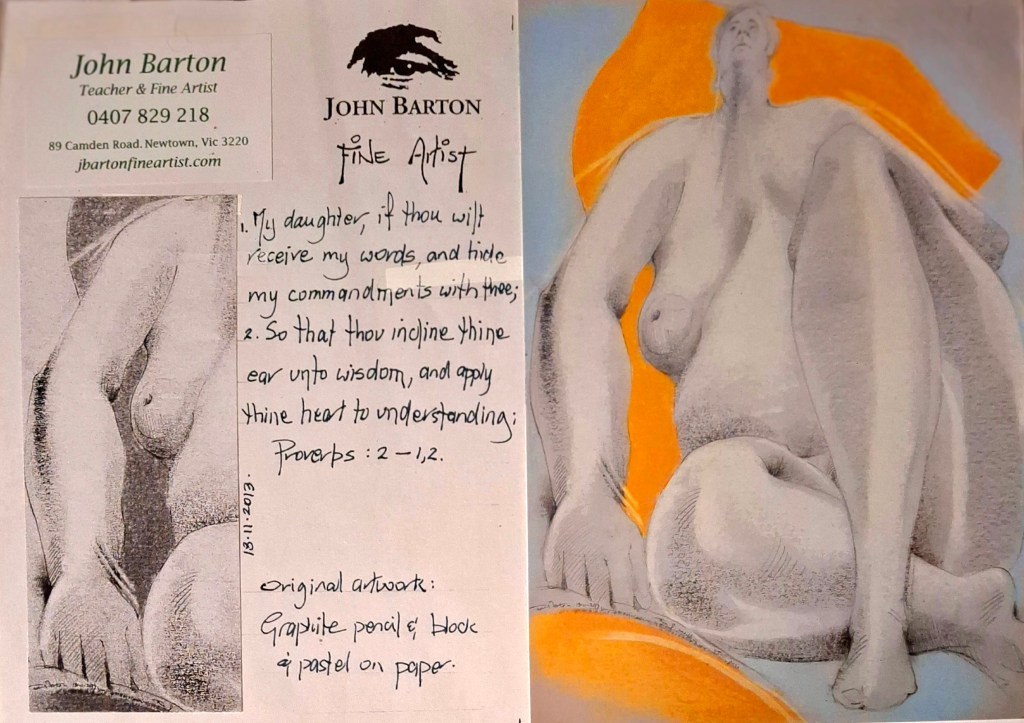 John Barton
Teacher & Fine Artist
0407 829 218
89 Camden Road. Newtown, Vic 3220
jbartonfineartist.com
JOHN BARTON
FiNE Artist
1. My daughter, if thou wilt
receive my words, and hide
my commandments with thee;
2. So that thou incline thine
ear unto wisdom, and apply
thine heart to understanding;
Proverbs : 2 – 1,2.
18·11·2013
Original artwork:
Graphite pencil & block
& pastel on paper.